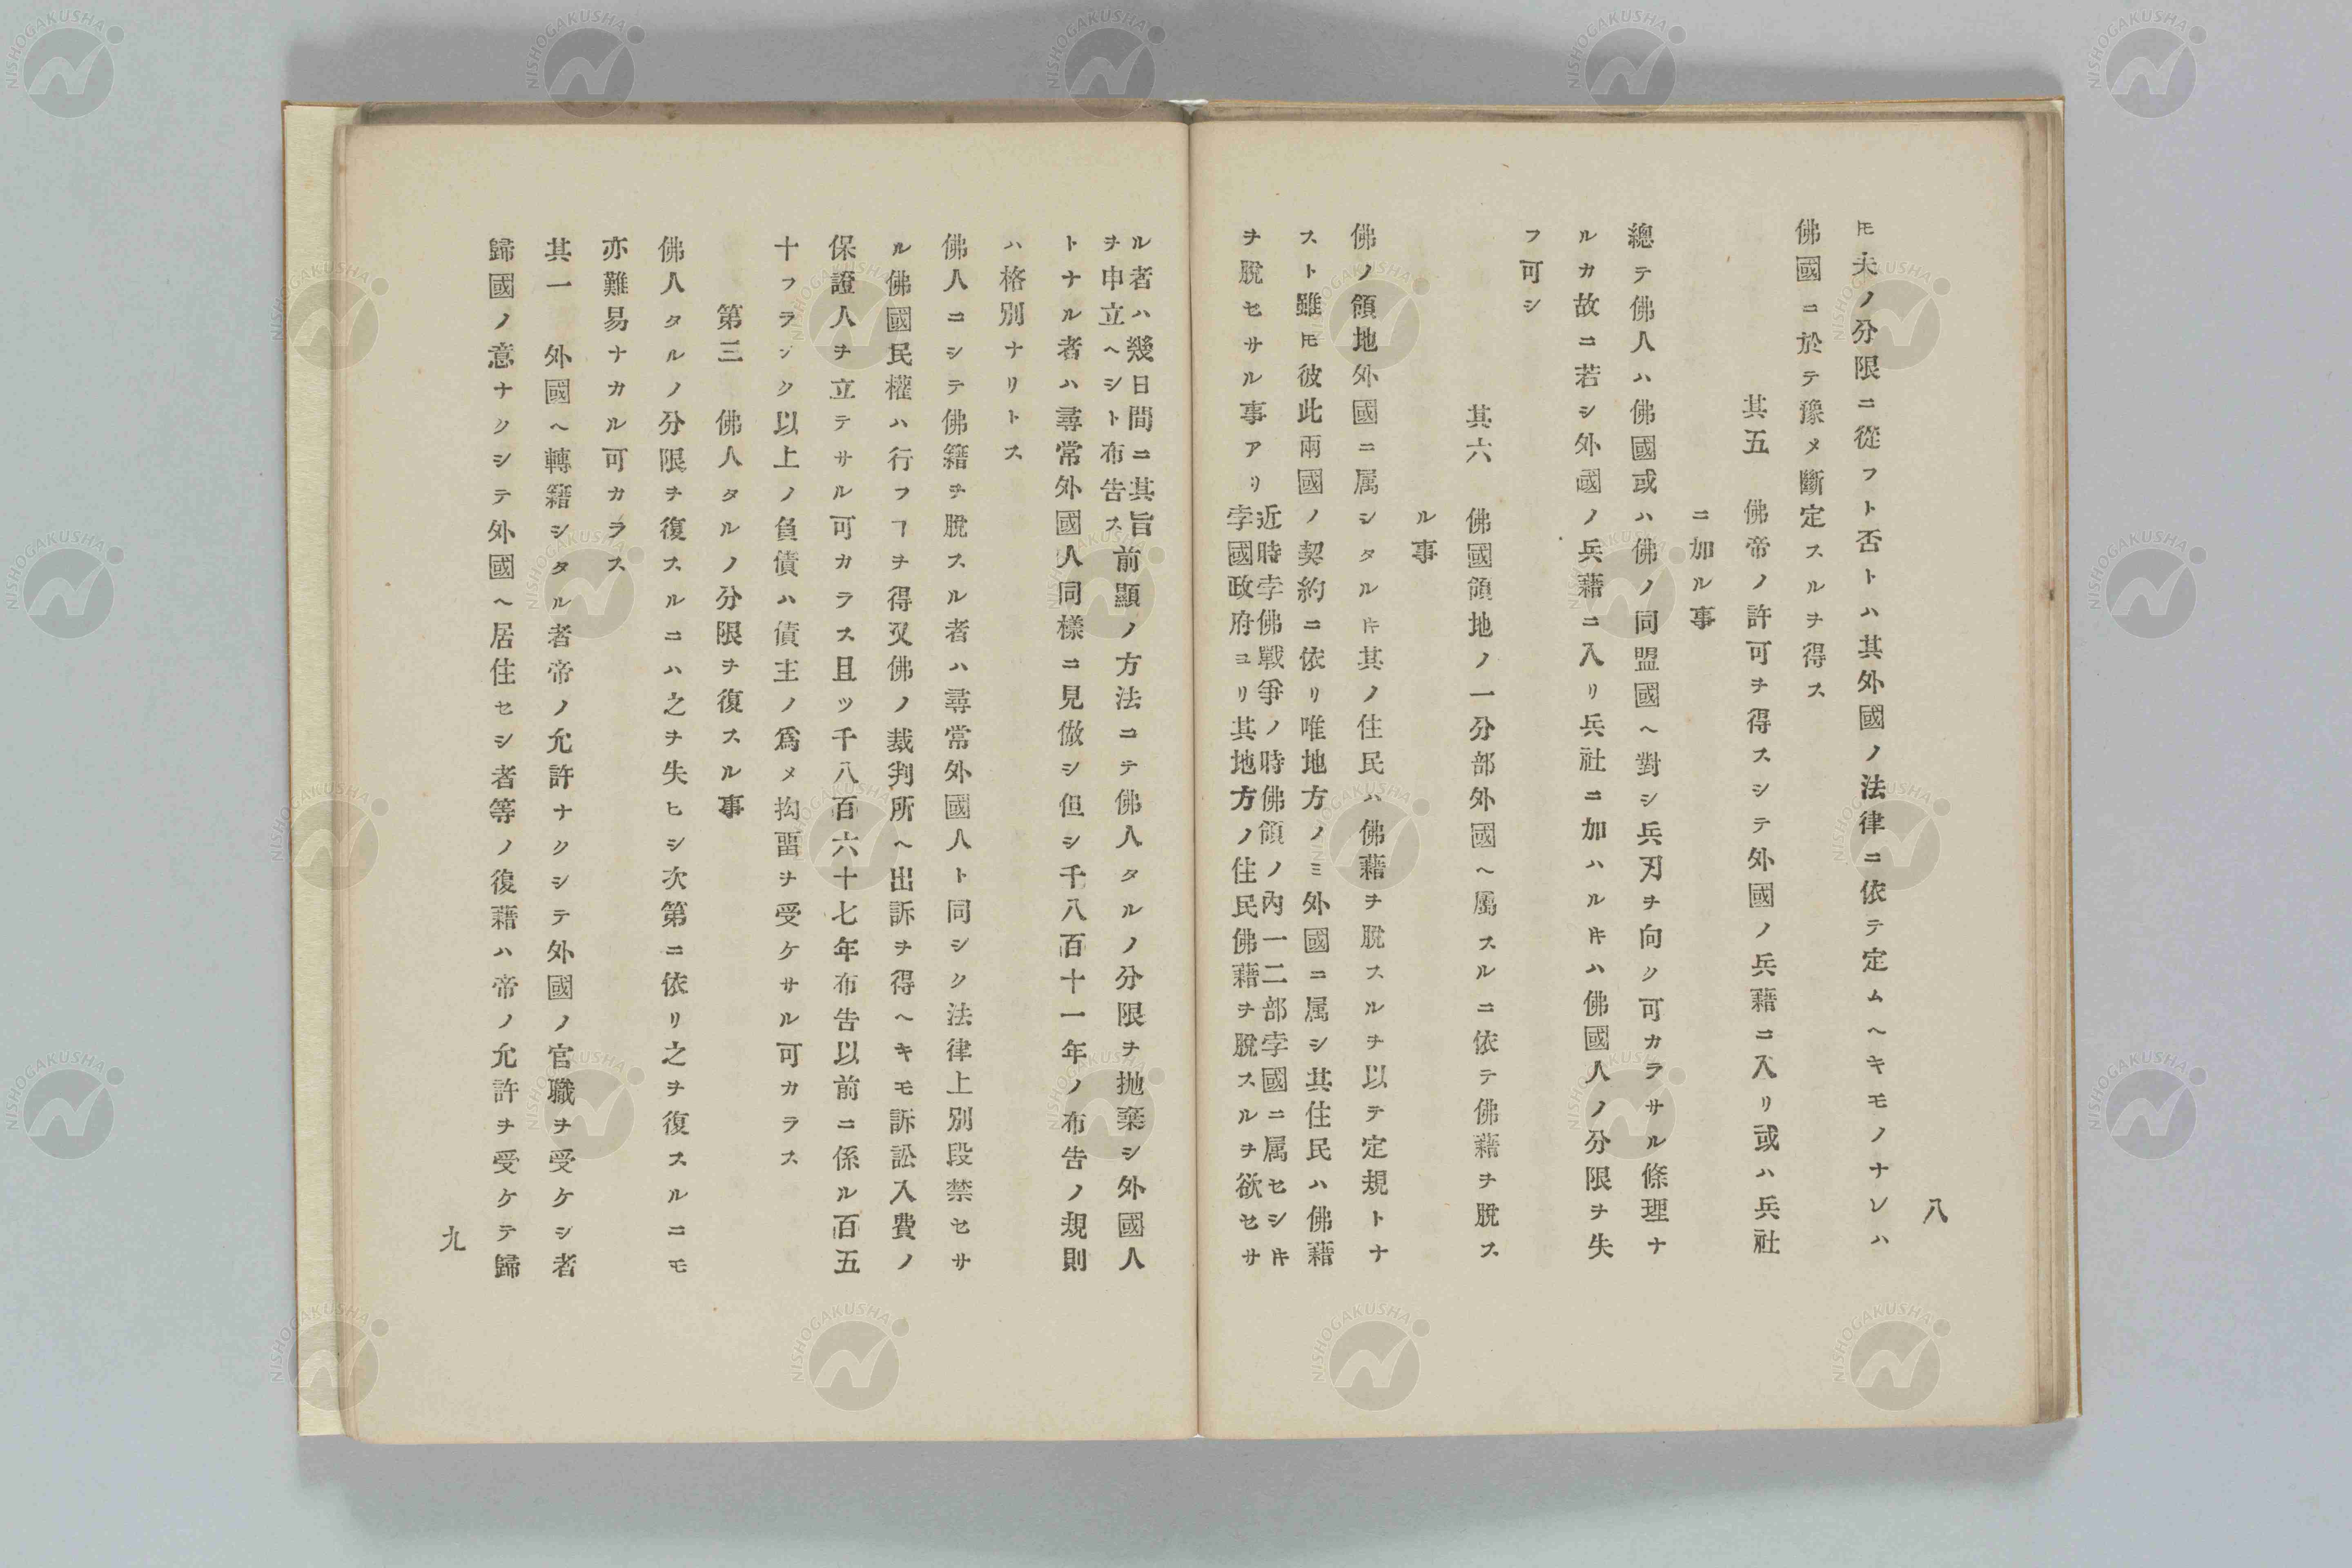 八
ヿモ夫ノ分限ニ從フト否トハ其外國ノ法律ニ依テ定ムヘキモノナレハ
佛國ニ於テ豫メ斷定スルヲ得ス
其五 佛帝ノ許可ヲ得スシテ外國ノ兵藉ニ入リ或ハ兵社
ニ加ル事
總テ佛人ハ佛國或ハ佛ノ同盟國ヘ對シ兵刃ヲ向ク可カラサル條理ナ
ルカ故ニ若シ外國ノ兵藉ニ入リ兵社ニ加ハルキハ佛國人ノ分限ヲ失
フ可シ
其六 佛國領地ノ一分部外國ヘ屬スルニ依テ佛藉ヲ脫ス
ル事
佛ノ領地外國ニ属シタルキ其ノ住民ハ佛藉ヲ脫スルヲ以テ定規トナ
スト雖ㇳモ彼此兩國ノ契約ニ依リ唯地方ノミ外國ニ属シ其住民ハ佛藉
ヲ脫セサル事アリ
近時孛佛戰爭ノ時佛領ノ內一二部孛國ニ属セシキ
孛國政府ヨリ其地方ノ住民佛藉ヲ脫スルヲ欲セサ
ル者ハ幾日間ニ其旨
ヲ申立ヘシト布告ス
前顯ノ方法ニテ佛人タルノ分限ヲ抛棄シ外國人
トナル者ハ尋常外國人同樣ニ見倣シ但シ千八百十一年ノ布告ノ規則
ハ格別ナリトス
佛人ニシテ佛籍ヲ脫スル者ハ尋常外國人ト同シク法律上別段禁セサ
ル佛國民權ハ行フヿヲ得又佛ノ裁判所ヘ出訴ヲ得ヘキモ訴訟入費ノ
保證人ヲ立テサル可カラス且ツ千八百六十七年布告以前ニ係ル百五
十フランク以上ノ負債ハ債主ノ爲メ拘畱ヲ受ケサル可カラス
第三 佛人タルノ分限ヲ復スル事
佛人タルノ分限ヲ復スルニハ之ヲ失ヒシ次第ニ依リ之ヲ復スルニモ
亦難易ナカル可カラス
其一 外國ヘ轉籍シタル者帝ノ允許ナクシテ外國ノ官職ヲ受ケシ者
歸國ノ意ナクシテ外國ヘ居住セシ者等ノ復藉ハ帝ノ允許ヲ受ケテ歸
九
NISHOGAKUSHA